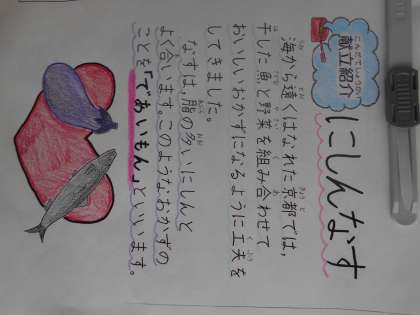 こんだてしょうかい
献立紹介
にしんなす
海から遠くはなれた京都では、
干した魚と野菜を組み合わせて
おいしいおかずになるように工夫を
してきました。
なすは、脂の多いにしんと
よく合います。このようなおかずの
ことを「であいもん」といいます。